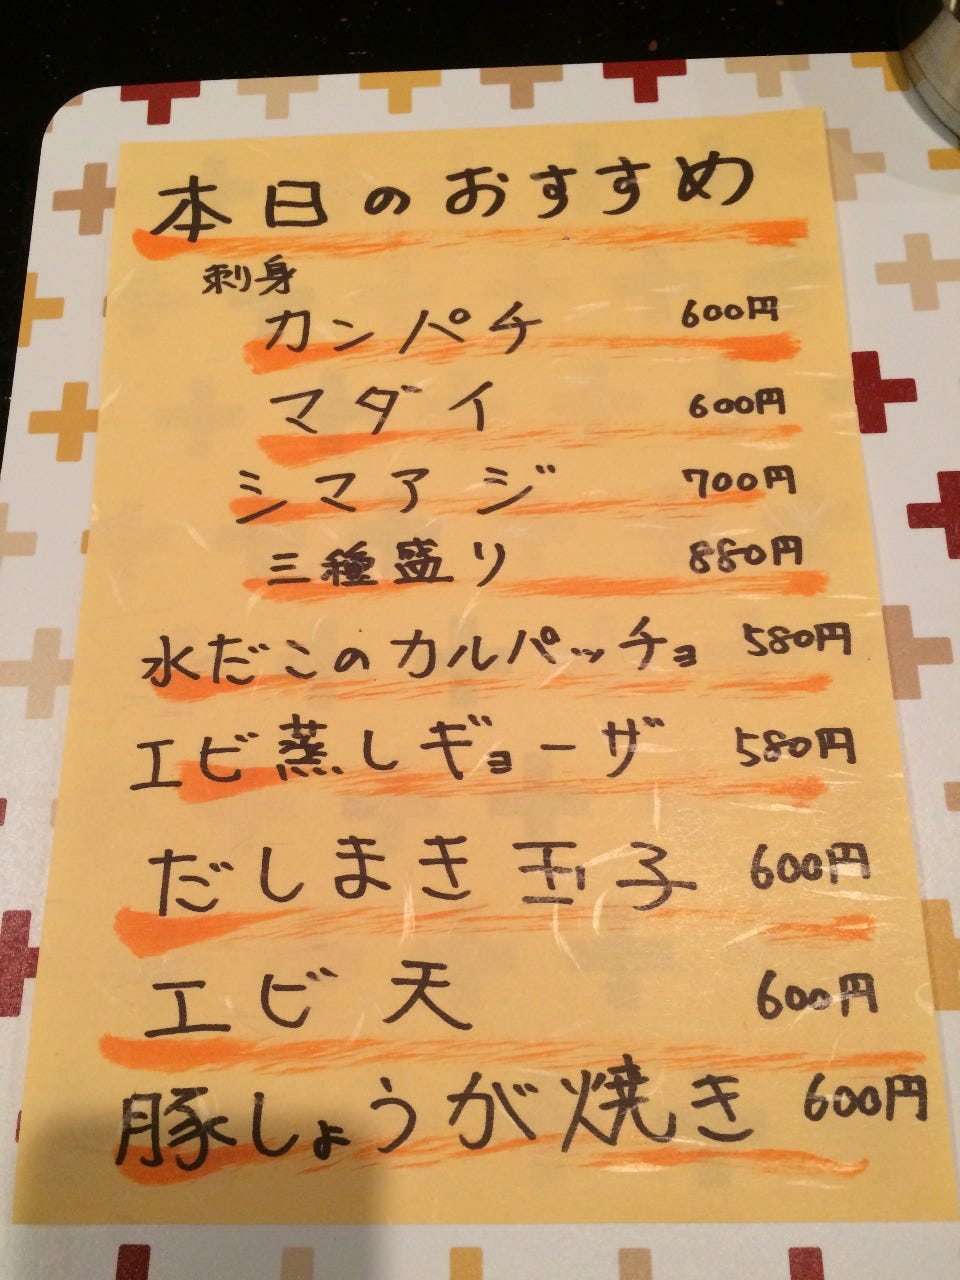 本日のおすすめ
刺身
カンパチ 600円
マダイ 600円
シマアジ 700円
三種盛り 880円
水だこのカルパッチョ 580円
エビ蒸しギョーザ 580円
だしまき玉子 600円
エビ天 600円
豚しょうが焼き 600円